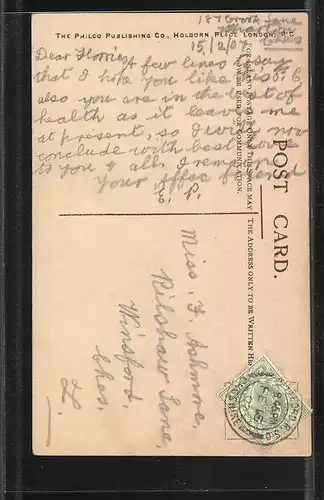 THE PHILCO PUBLISHING CO., HOLBORN PLACE, LONDON, W.C.
18 Crook Lane
Wharton
Ches
15/2/07
Dear Florrie
A few lines to say
that I hope you like this P. C
also you are in the best of
health as it leaves me
at present, so I will now
conclude with best love
to you & all, I remain
Your Affec friend
P.
POST CARD.
FOR INLAND POSTAGE ONLY THIS SPACE MAY
NOW BE USED FOR COMMUNICATION.
THE ADDRESS ONLY TO BE WRITTEN HERE
Miss. F. Ashmore,
Rilshaw Lane,
Winsford,
Ches.